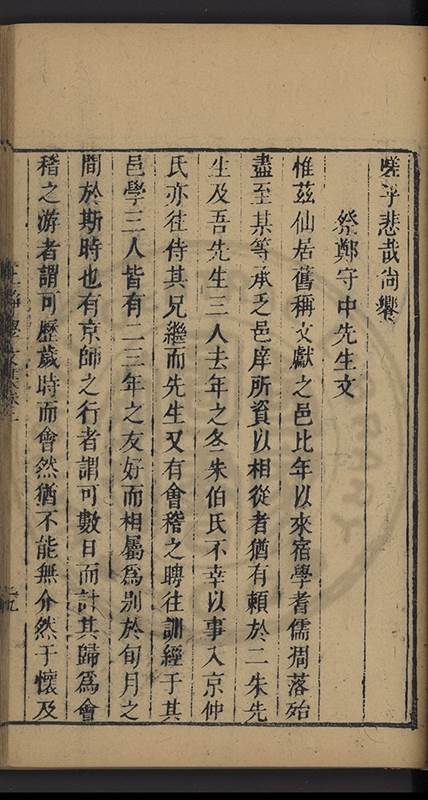 嗟乎悲哉尚饗
祭鄭守中先生文
惟茲仙居舊稱文獻之邑比年以來宿學耆儒凋落殆
盡至某等承乏邑庠所資以相從者猶有賴於二朱先
生及吾先生三人去年之冬朱伯氏不幸以事入京仲
氏亦徃侍其兄繼而先生又有會稽之聘徃訓經于其
邑學三人皆有二三年之友好而相屬爲别於旬月之
間於斯時也有京師之行者謂可數日而計其歸爲會
稽之游者謂可歷歲時而會然猶不能無介然于懷及